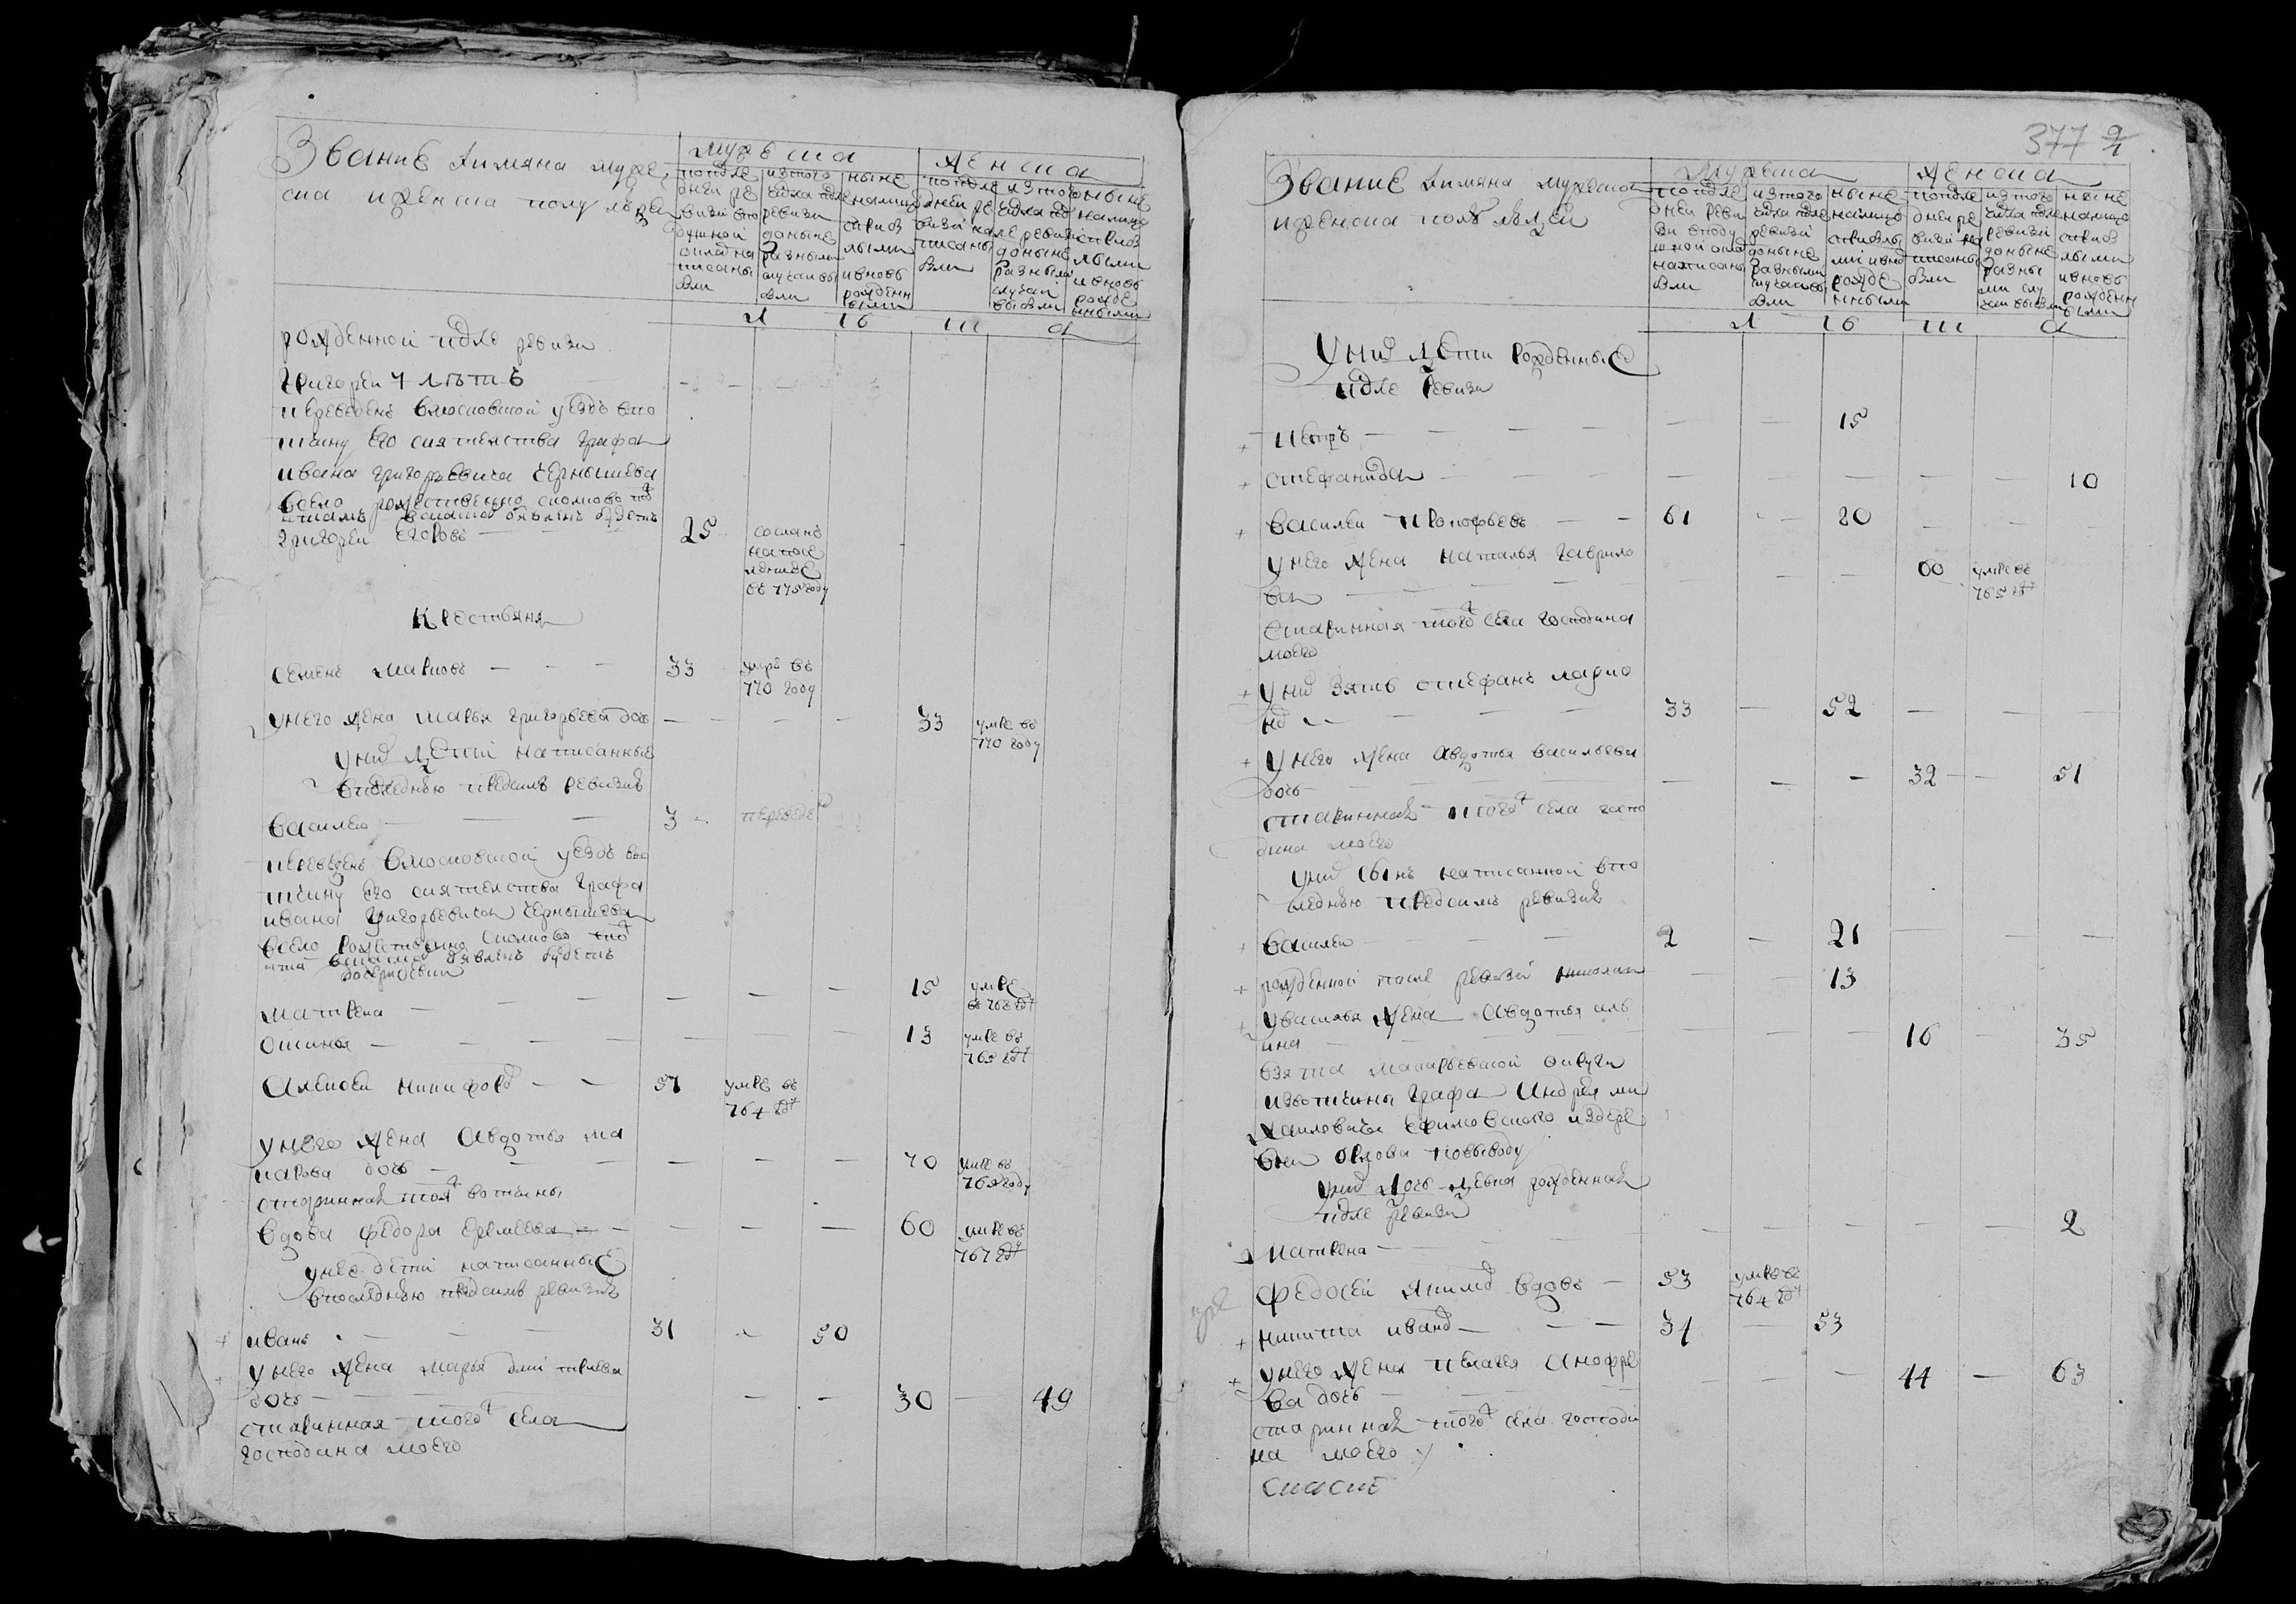 Звание имяна муже,
ска и женска полу людей
мужеска
женска
по после
дней ре
визи в по
душной
оклад на
писаны
были
из того
числа после
ревизи
до ныне
разными
случаи вы
были
ныне
на лицо
с прибо
лыми
и вновь
рожденн
ыми
по после
дней ре
визи на
писаны
были
из того
числа по
сле ревизи
до ныне
разными
случаи
выбыли
ныне
на лицо
с прибо
лыми
и вновь
рожде
нными
л
16
ш
а
рожденной после ревизи
григореи 4 летъ
переведенъ вмосковской уездъ вво
тчину его сиятелства графа
ивана григорьевича чернышева
всело рожествено
григореи егоровъ 25 сосланъ
на посе
ление
въ 775 году
Крестьяня
семенъ марковъ 33 умре въ
770 году
у него жена марья григорьева дочь 33 умре въ
770 году
у них дети написанные
в последнею пред симъ ревизию
василеи 3 переведен
переведенъ вмосковской уездъ вво
тчину его сиятелства графа
ивана григорьевича чернышева
всело рожествено
матрена 15 умре
въ 768 году
13 умре въ
765 году
алексеи никифоров 57 умре въ
764 году
у него жена авдотья ма
карова дочь 70 умре въ
году
старинная той ж вотчины
вдова федора еремеева 60 умре въ
767 году
у нее дети написанные
в последнею пред симъ ревизию
иванъ 31 50
у него жена марья дмитриева
дочь 30 49
старинная того ж села
господина моего
377
Звание имяна мужеска
и женска полу людей
мужеска
женска
по после
дней реви
зи в поду
шной оклад
написаны
были
из того
числа после
ревизи
до ныне
разными
случаи вы
были
ныне
на лицо
с прибылы
ми и вно
рожде
нными
по после
дней ре
визи на
писаны
были
из того
числа после
ревизи
до ныне
разны
ми слу
чаи выбыли
ныне
на лицо
с прибо
лыми
и вновь
рожденн
ыми
л
16
ш
а
у них дети рожденные
после ревизи
петръ 15
стефанида 10
василеи прокофьевъ 61 80
у него жена наталья гаврило
ва 60 умре въ
765 году
старинная того ж села господина
моего
у них зять стефанъ ларио
нов 33 52
у него жена авдотья васильева
дочь 32 51
старинная того ж села госпо
дина моего
у них сынъ написанной в по
следнею пред симъ ревизию
василеи 2 21
рожденной после ревизи николаи 13
у василья жена авдотья иль
ина 16 35
взята макарьевской округи
из вотчины графа андрея ми
хаиловича ефимовского из дере
вни по выводу
у них дочь девка рожденная
после ревизи
матрена 2
федосеи якимов вдовъ 53 умре въ
764 году
никита иванов 34 53
у него жена пелагея анофрие
ва дочь 44 63
старинная того ж села господи
на моего